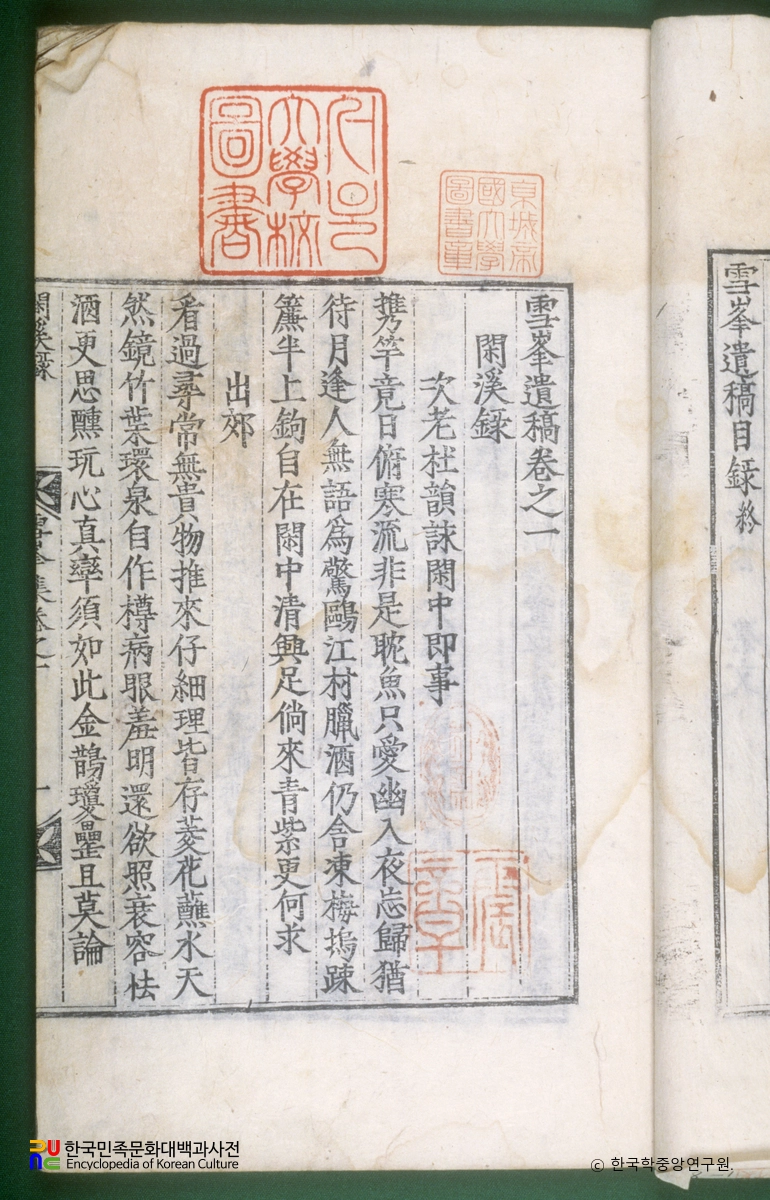 雪峯遺稿目錄終
雪峯遺稿卷之一
閑溪錄
次老杜韻詠閑中即事
携竿竟日俯寒流非是耽魚只愛幽入夜忘歸猶
待月逢人無語爲驚鷗江村臘酒仍含凍梅塢踈
簾半上鉤自在閑中清興足倘來青紫更何求
出郊
看過尋常無貴物推來仔細理皆存菱花蘸水天
然鏡竹葉環泉自作樽病眼羞明還欲照衰容怯
酒更思醺玩心真率須如此金鵲瓊罍且莫論
閑溪錄
雪峯集卷之一
一
京城帝
國大學
圖書章
大學校
圖書
한국민족문화대백과사전
Encyclopedia of Korean Culture
© 한국학중앙연구원.